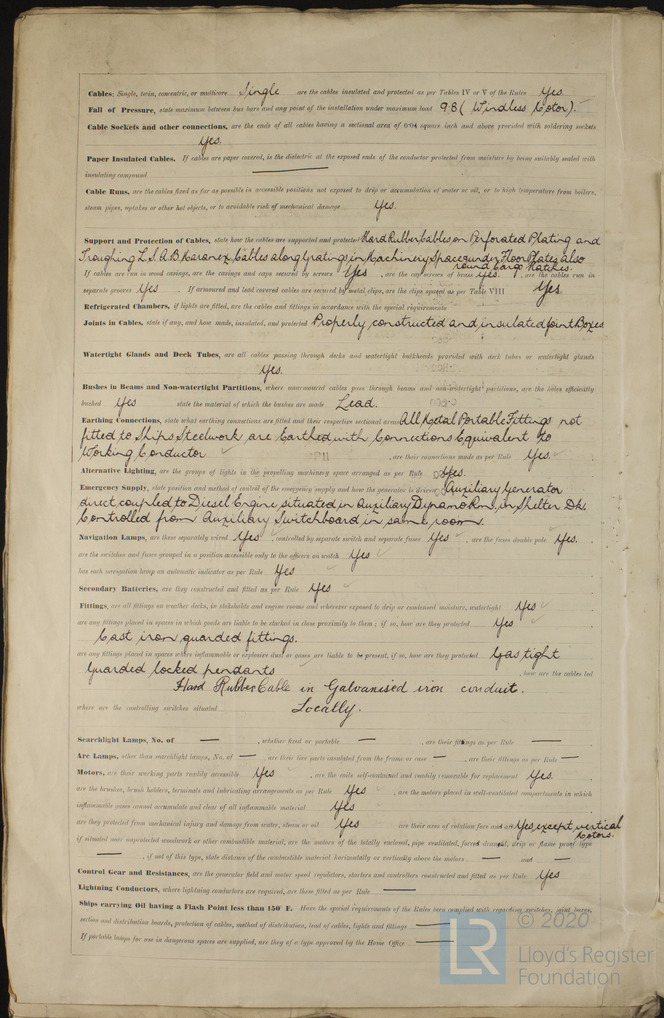 Cables: Single, twin, concentric, or multicore Single are the cables insulated and protected as per Tables IV or V of the Rules Yes.
Fall of Pressure, state maximum between bus bars and any point of the installation under maximum load 9.8 ( Windlass Motor).
Cable Sockets and other connections, are the ends of all cables having a sectional area of 0.04 square inch and above provided with soldering sockets
Yes.
Paper Insulated Cables. If cables are paper covered, is the dielectric at the exposed ends of the conductor protected from moisture by being suitably sealed with
insulating compound
Cable Runs, are the cables fixed as far as possible in accessible positions not exposed to drip or accumulation of water or oil, or to high temperature from boilers,
steam pipes, uptakes or other hot objects, or to avoidable risk of mechanical damage Yes.
Support and Protection of Cables, state how the cables are supported and protected Hard Rubber Cables on Perforated Plating and
Troughing L.S.A.B. Cables along Gratings in Machinery Space under Floor Plates also
round Cargo Hatches.
If cables are run in wood casings, are the casings and caps secured by screws Yes, are the cap screws of brass yes. , are the cables run in
separate grooves Yes. If armoured and lead covered cables are secured by metal clips, are the clips spaced as per Table VIII Yes.
Refrigerated Chambers, if lights are fitted, are the cables and fittings in accordance with the special requirements
Joints in Cables, state if any, and how made, insulated, and protected Properly constructed and insulated Joint Boxes
Watertight Glands and Deck Tubes, are all cables passing through decks and watertight bulkheads provided with deck tubes or watertight glands
Yes.
Bushes in Beams and Non-watertight Partitions, where unarmoured cables pass through beams and non-watertight partitions, are the holes efficiently
bushed Yes state the material of which the bushes are made Lead.
Earthing Connections, state what earthing connections are fitted and their respective sectional areas All Metal Portable Fittings not
fitted to Ships Steelwork are Earthed with Connections Equivalent to
Working Conductor , are their connections made as per Rule Yes.
Alternative Lighting, are the groups of lights in the propelling machinery space arranged as per Rule Yes.
Emergency Supply, state position and method of control of the emergency supply and how the generator is driven Auxiliary Generator
direct coupled to Diesel Engine situated in Auxiliary Dynamo Rm, in Shelter Dk.
Controlled from Auxiliary Switchboard in same room.
Navigation Lamps, are these separately wired Yes, controlled by separate switch and separate fuses Yes, are the fuses double pole Yes.
are the switches and fuses grouped in a position accessible only to the officers on watch Yes
has each navigation lamp an automatic indicator as per Rule Yes
Secondary Batteries, are they constructed and fitted as per Rule Yes
Fittings, are all fittings on weather decks, in stokeholds and engine rooms and wherever exposed to drip or condensed moisture, watertight Yes
are any fittings placed in spaces in which goods are liable to be stacked in close proximity to them; if so, how are they protected Yes
Cast iron guarded fittings.
are any fittings placed in spaces where inflammable or explosive dust or gases are liable to be present, if so, how are they protected Gas tight
guarded locked pendants , how are the cables led
Hard Rubber Cable in Galvanised iron conduit.
where are the controlling switches situated Locally.
Searchlight Lamps, No. of , whether fixed or portable , are their fittings as per Rule
Arc Lamps, other than searchlight lamps, No. of , are their live parts insulated from the frame or case , are their fittings as per Rule
Motors, are their working parts readily accessible Yes , are the coils self-contained and readily removable for replacement Yes.
are the brushes, brush holders, terminals and lubricating arrangements as per Rule Yes , are the motors placed in well-ventilated compartments in which
inflammable gases cannot accumulate and clear of all inflammable material Yes
are they protected from mechanical injury and damage from water, steam or oil Yes are their axes of rotation fore and aft Yes, except vertical
Motors.
if situated near unprotected woodwork or other combustible material, are the motors of the totally enclosed, pipe ventilated, forced draught, drip or flame proof type
, if not of this type, state distance of the combustible material horizontally or vertically above the motors and
Control Gear and Resistances, are the generator field and motor speed regulators, starters and controllers constructed and fitted as per Rule Yes
Lightning Conductors, where lightning conductors are required, are these fitted as per Rule
Ships carrying Oil having a Flash Point less than 150° F. Have the special requirements of the Rules been complied with regarding switches, joint boxes,
section and distribution boards, protection of cables, method of distribution, lead of cables, lights and fittings
If portable lamps for use in dangerous spaces are supplied, are they of a type approved by the Home Office
© 2020
LR Lloyd's Register
Foundation